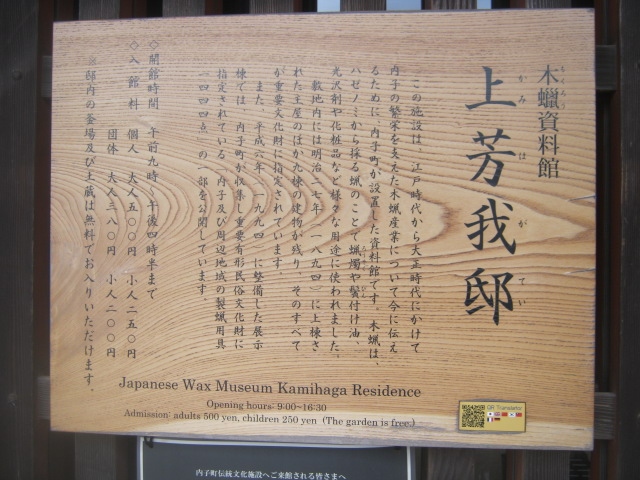 木蠟資料館
もくろう
上芳我邸
かみ は が てい
この施設は、江戸時代から大正時代にかけて
内子の繁栄を支えた木蠟産業について今に伝え
るために、内子町が設置した資料館です。木蠟は、
ハゼノミから採る蠟のことで蠟燭や鬢付け油、
光沢剤や化粧品など様々な用途に使われました。
敷地内には明治二七年(一八九四)に上棟さ
れた主屋のほか九棟の建物が残り、そのすべて
が重要文化財に指定されています。
また、平成六年(一九九四)に整備した展示
棟では、内子町が収集し重要有形民俗文化財に
指定されている「内子及び周辺地域の製蠟用具
(一四四四点)」の一部を公開しています。
◇開館時間 午前九時~午後四時半まで
◇入館料 個人 大人五〇〇円 小人二五〇円
団体 大人三八〇円 小人二〇〇円
※邸内の釜場及び土蔵は無料でお入りいただけます。
Japanese Wax Museum Kamihaga Residence
Opening hours: 9:00~16:30
Admission: adults 500 yen, children 250 yen (The garden is free.)
QR Translator
内子町伝統文化施設へご来館される皆さまへ